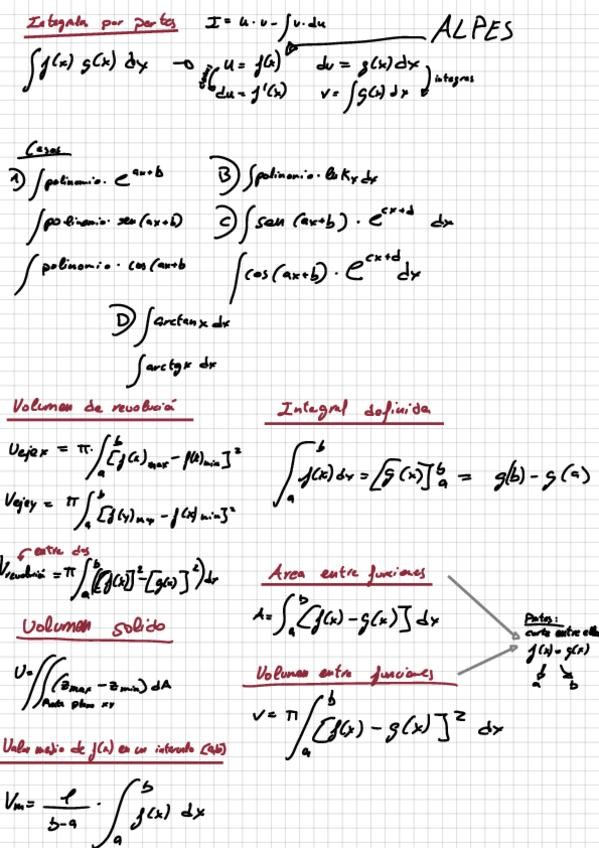 Integrala por partes I = u·v - ∫v·du ALPES
∫f(x) g(x) dx → u = f(x) dv = g(x)dx
du = f'(x) v = ∫g(x)dx integras
Casos
A) ∫polinomio· e^(ax+b)
∫polinomio· sen(ax+b)
∫polinomio· cos(ax+b
B) ∫polinomio· ln kx dx
C) ∫sen(ax+b) · e^(cx+d) dx
∫cos(ax+b) · e^(cx+d) dx
D) ∫arctanx dx
∫arctgx dx
Volumen de revolució
Vejex = π·∫_a^b [f(x)max - f(x)min]²
Vejey = π∫_a^b [f(y)max - f(x)min]²
entre dos
Vrevolució = π∫_a^b ([f(x)]² - [g(x)]²)dx
Volumen solido
V = ∬(Zmax - Zmin) dA
plano xy
Valor medio de f(x) en un intervalo [a,b]
Vm = 1/(b-a) · ∫_a^b f(x) dx
Integral definida
∫_a^b f(x) dx = [G(x)]_a^b = g(b) - g(a)
Area entre funciones
A = ∫_a^b [f(x) - g(x)] dx
Volumen entre funciones
V = π ∫_a^b [f(x) - g(x)]² dx
Puntos:
corte entre ellas
f(x) = g(x)
a b